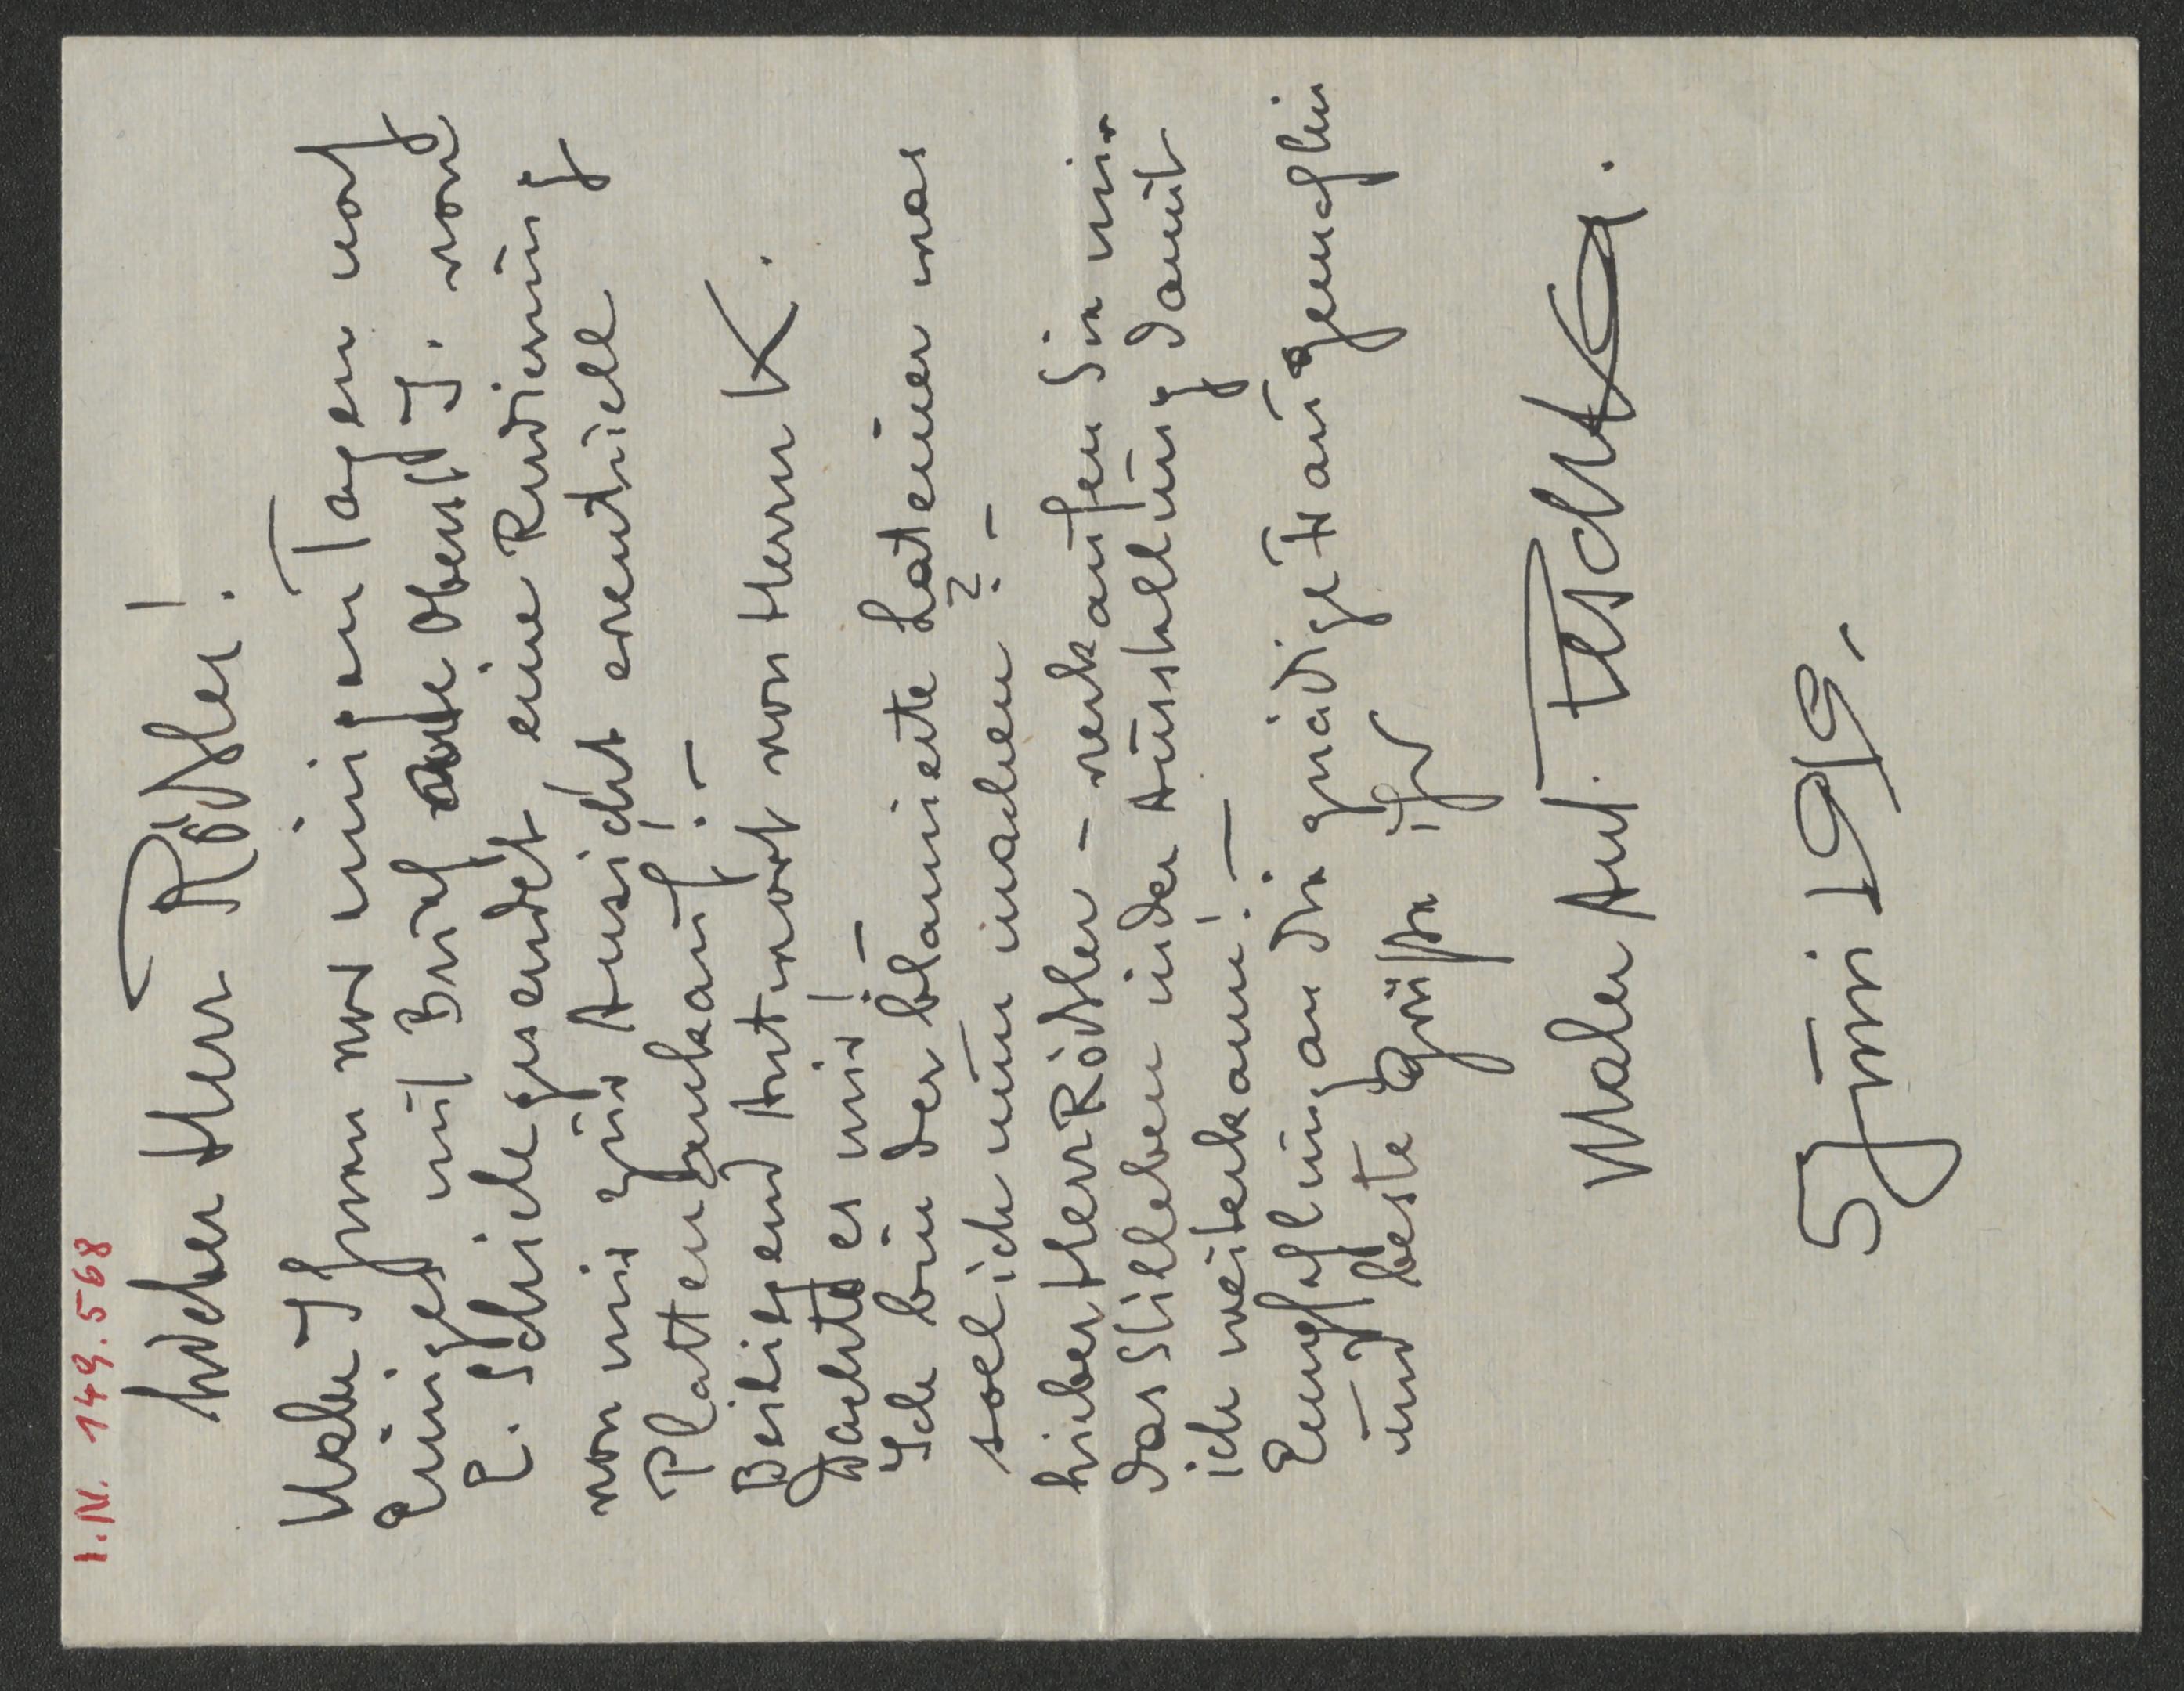 I.N. 149.568
Lieber Herr Rössler!
Habe Ihnen vor einigen Tagen noch
Einiges mit Brief an Oberst J. von
E. Schiele gesendet, eine Radierung
von mir zur Ansicht eventuell
Plattenankauf! –
Beiliegend Antwort von Herrn K.
Dachte es mir! –
Ich bin der blamierte Lateiner was
soll ich nun machen? –
Lieber Herr Rössler – verkaufen Sie mir
das Stilleben in der Ausstellung damit
ich weiterkann! –
Empfehlung an die gnädige Frau Gemahlin
und beste Grüsse Ihr
Maler Ant. Peschka.
5 Juni 1919. –